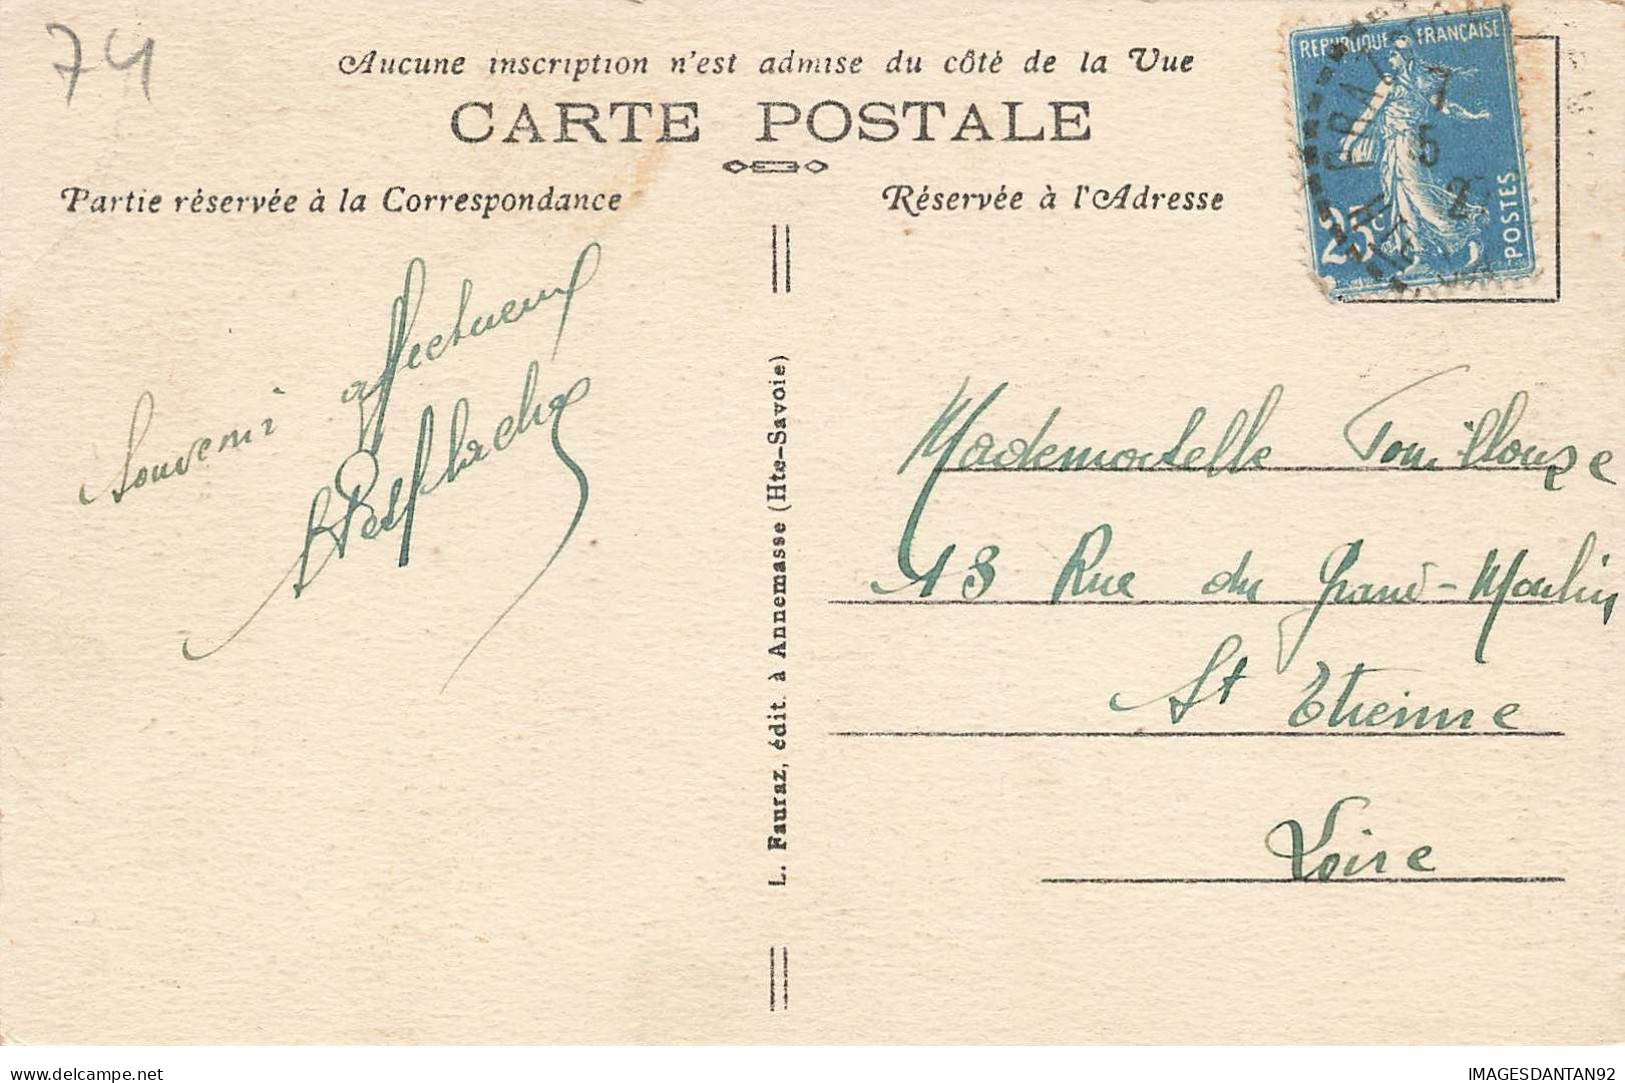 74
Aucune inscription n'est admise du côté de la Vue
CARTE POSTALE
Partie réservée à la Correspondance
Réservée à l'Adresse
REPUBLIQUE FRANÇAISE
25c
POSTES
7
15
2
Souvenir affectueux
L. Fauraz, édit. à Annemasse (Hte-Savoie)
Mademoiselle Touilloux
13 Rue du Grand-Moulin
St Etienne
Loire
delcampe.net
IMAGESDANTAN92